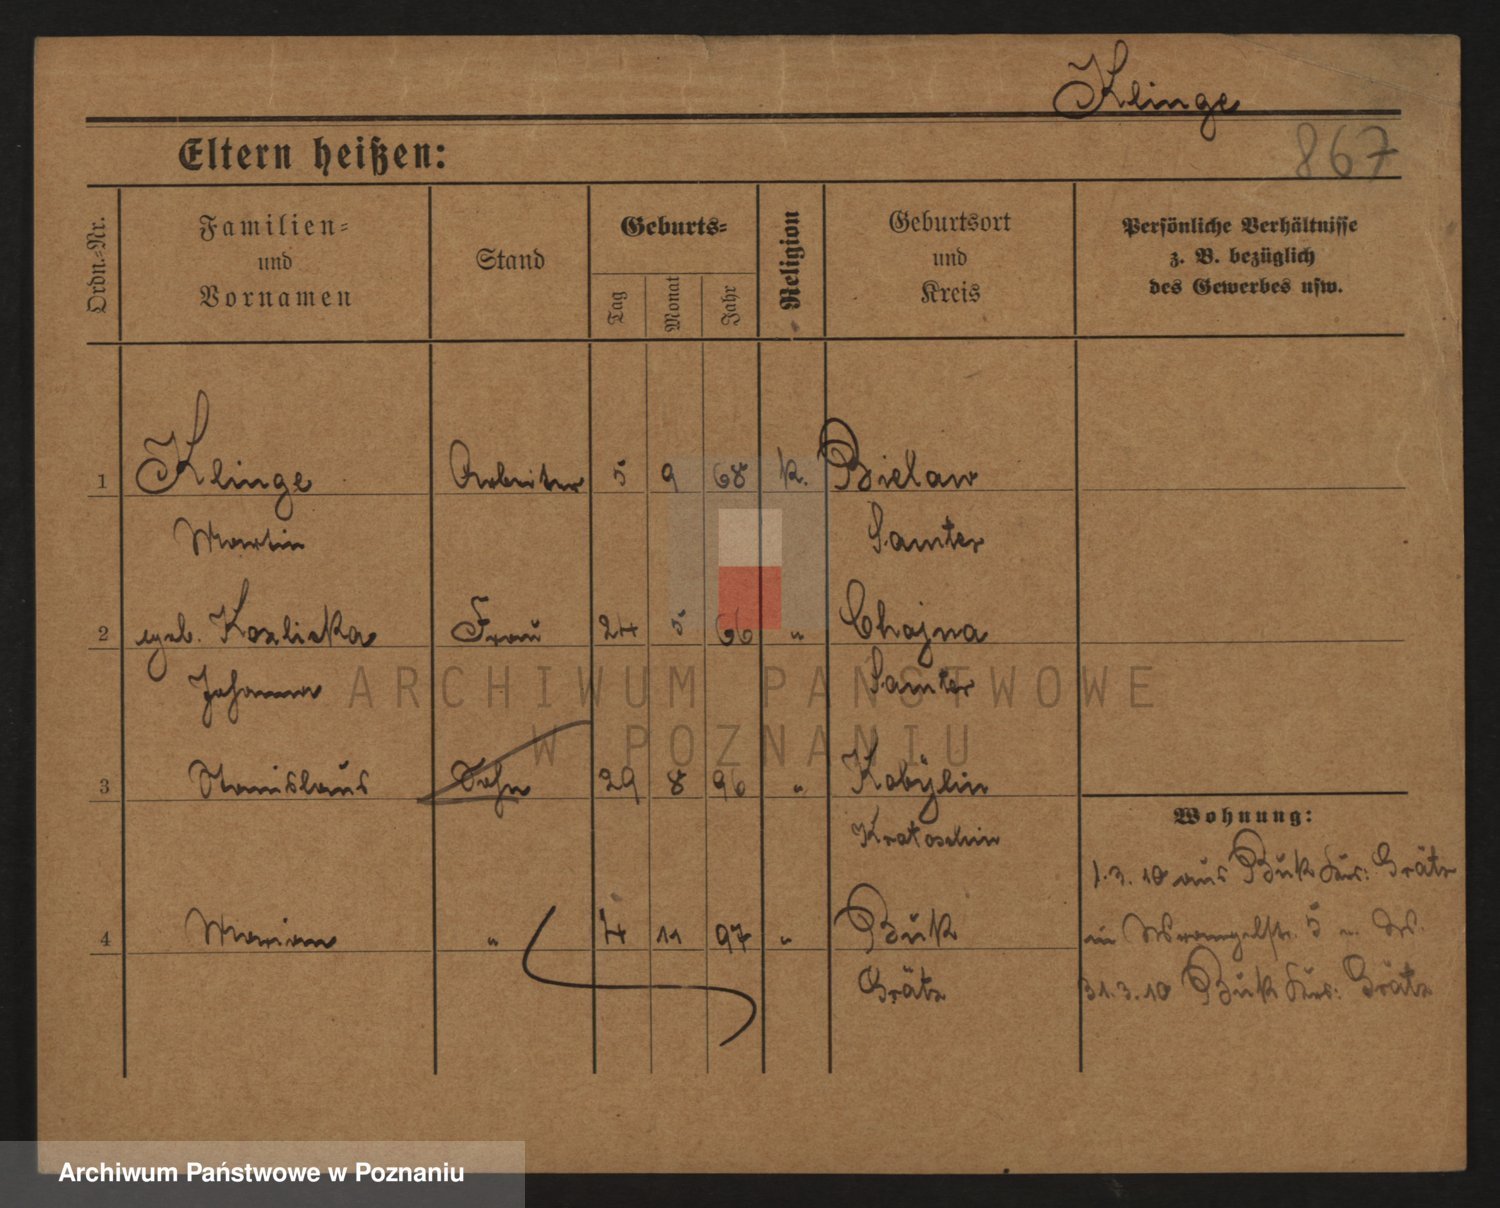 Klinge
867
Eltern heißen:
Ordn.-Nr.
Familien-
und
Vornamen
Stand
Geburts-
Tag
Monat
Jahr
Religion
Geburtsort
und
Kreis
Persönliche Verhältnisse
z. B. bezüglich
des Gewerbes usw.
1 Klinge Arbeiter 5 9 68 k. Bielaw
Martin Samter
2 geb. Kozlicka Frau 24 5 66 " Chojna
Johanna Samter
ARCHIWUM PAŃSTWOWE
W POZNANIU
3 Stanislaus Sohn 29 8 96 " Kobylin
Krotoschin
Wohnung:
1.3.10 aus Buk Grätz
4 Marian " 4 11 97 " Buk
in Wrangelstr. 5 n.
Grätz
31.3.10 Buk Grätz
Archiwum Państwowe w Poznaniu